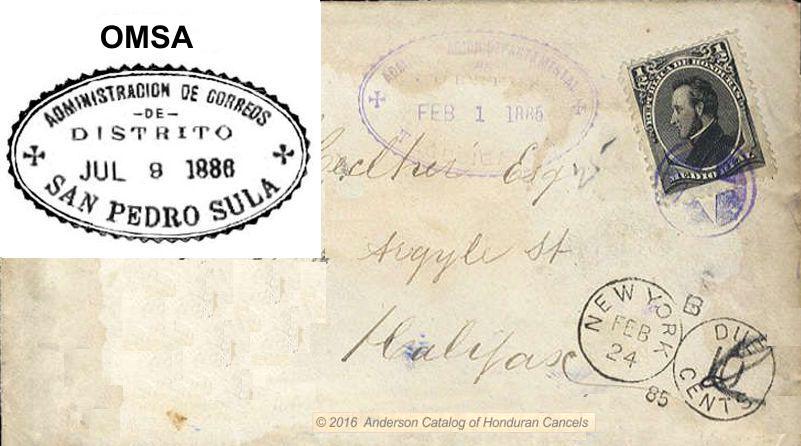 OMSA
ADMINISTRACION DE CORREOS
-DE-
DISTRITO
JUL 9 1886
SAN PEDRO SULA
DEPARTAMENTAL
FEB 1 1885
REPUBLICA DE HONDURAS
Esqr
Argyle St
Halifax
NEW YORK
FEB
24
85
B
DUE
10
CENTS
© 2016 Anderson Catalog of Honduran Cancels